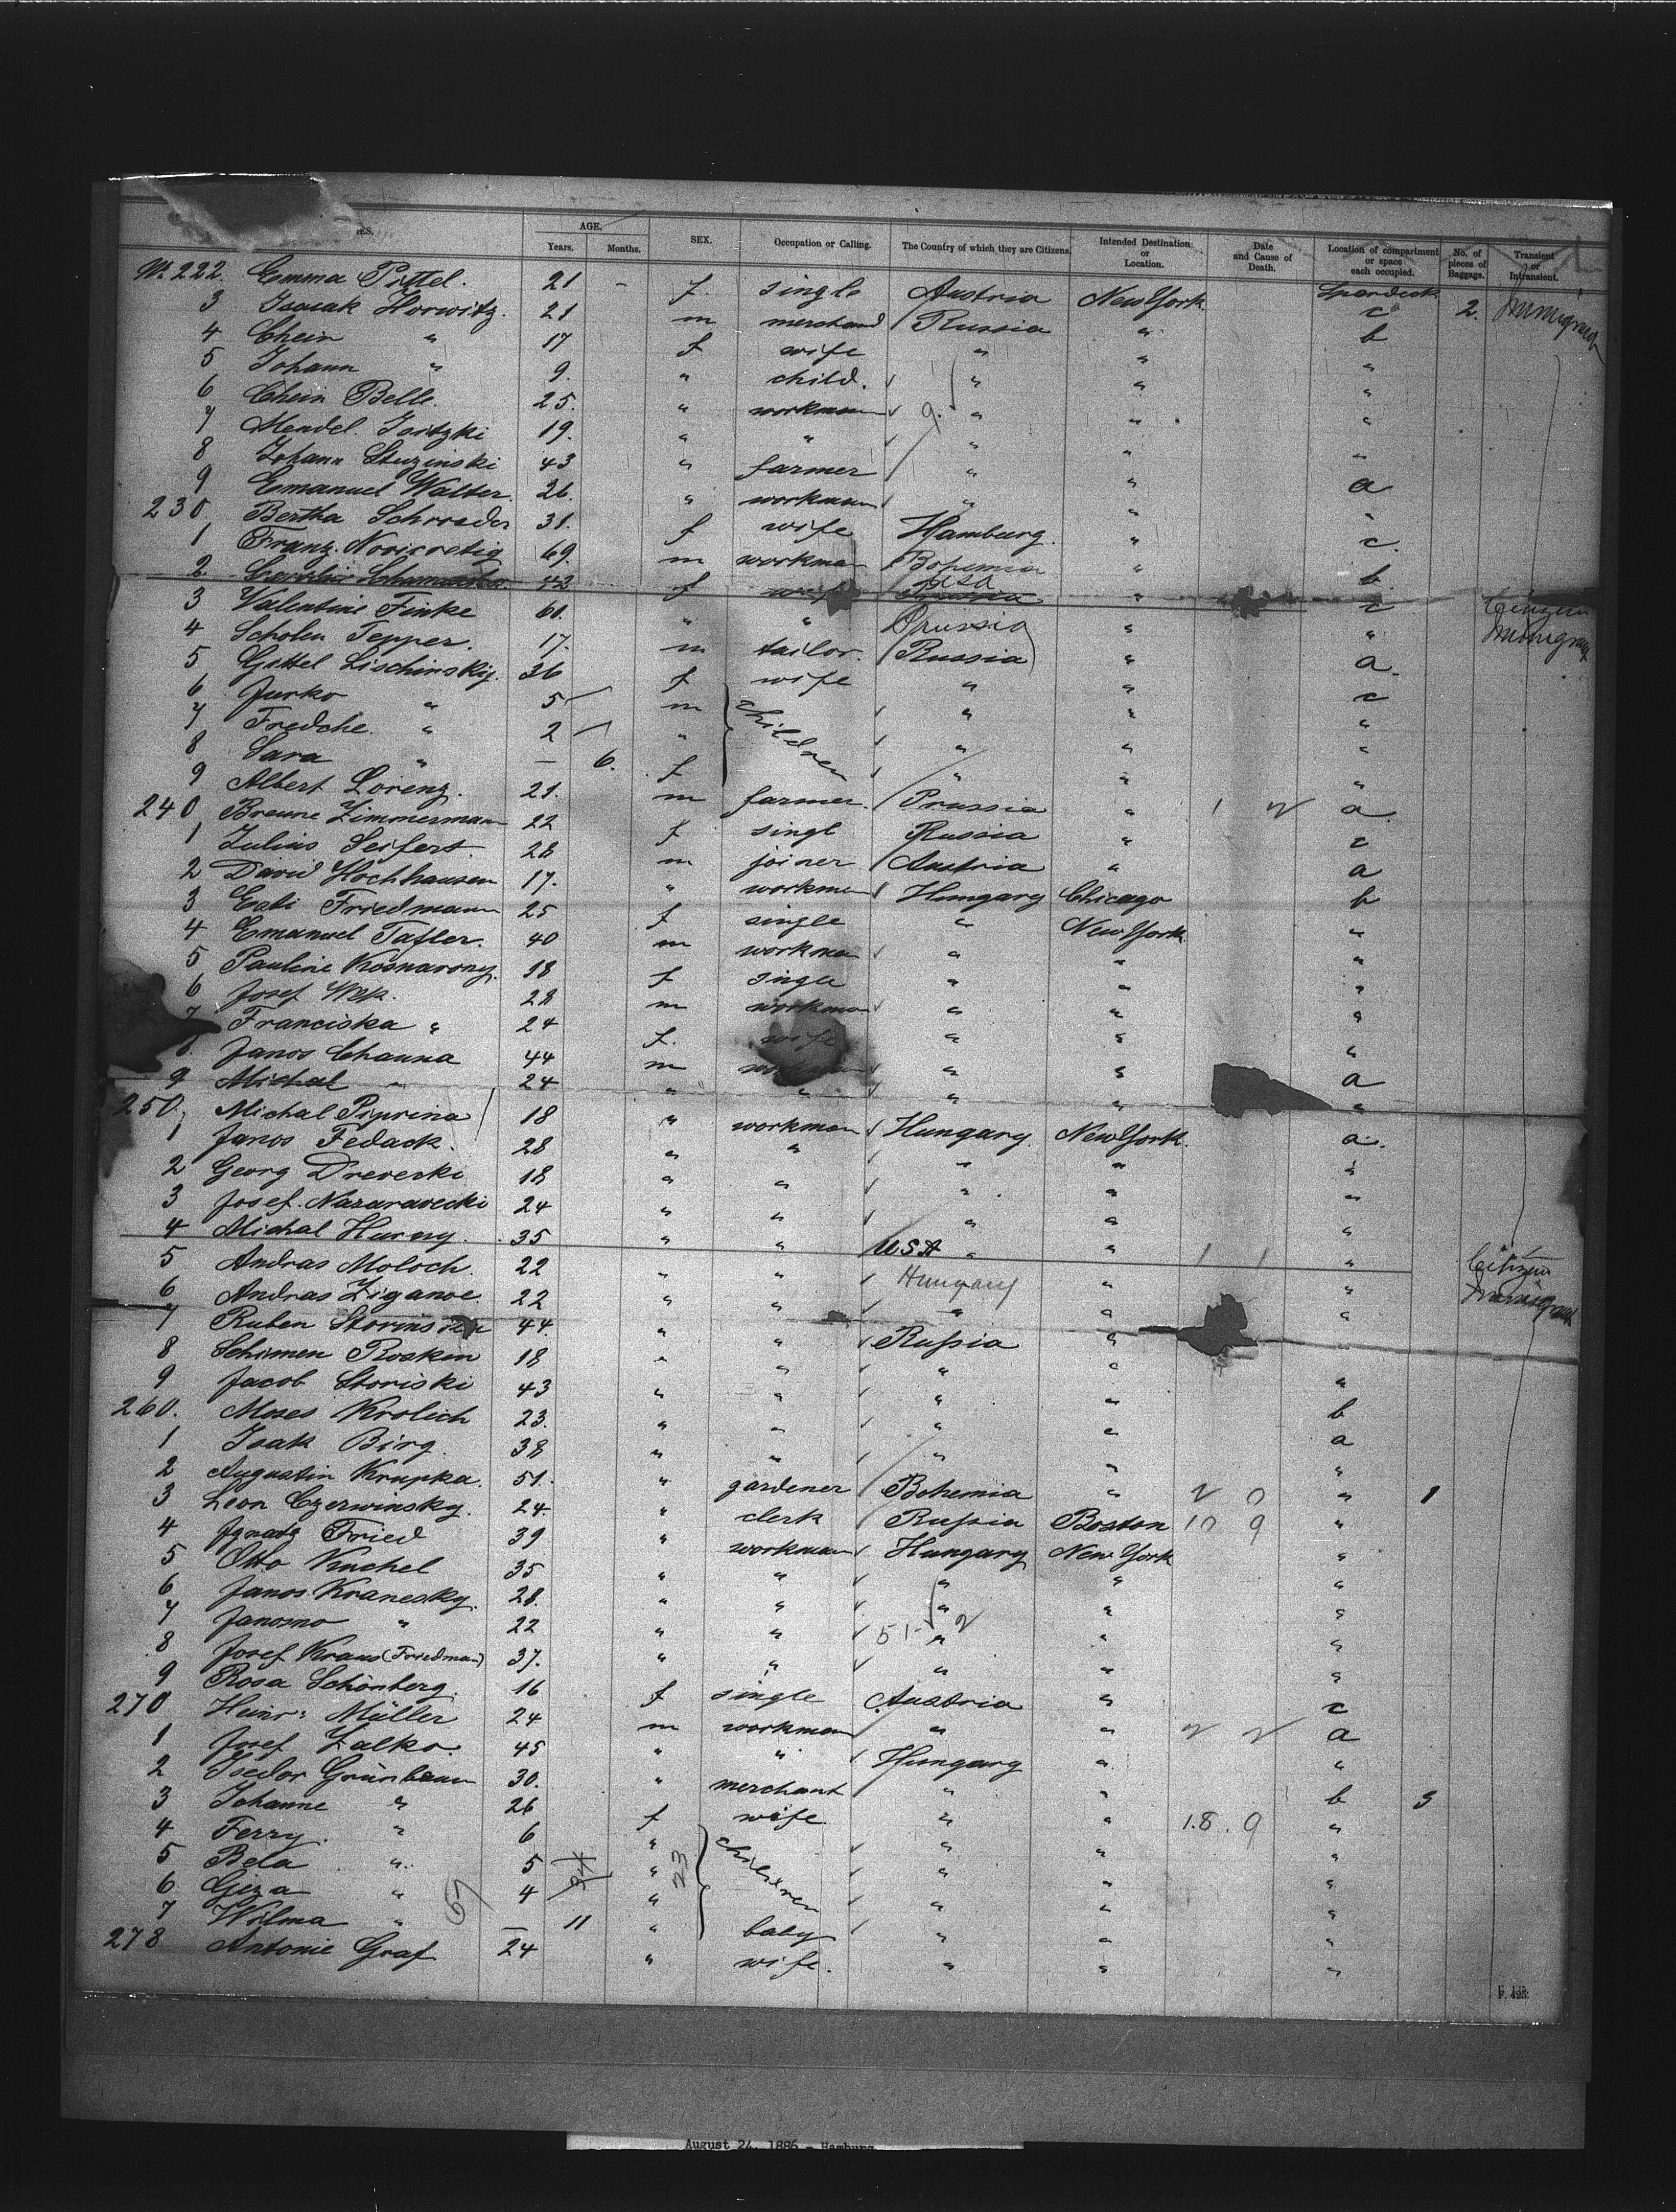 AGE.
Years. Months. SEX. Occupation or Calling. The Country of which they are Citizens. Intended Destination or Location. Date and Cause of Death. Location of compartment or space each occupied. No. of pieces of Baggage. Transient or Intransient.
No. 222. Emma Pittel. 21 - f. single Austria New York
3 Isaak Horwitz. 21 m merchand Russia " c 2.
4 Chein " 17 f wife " " b
5 Johann " 9. " child. " " "
6 Chein Belle. 25. " workman " " "
7 Mendel 19. " " " " "
8 Johann Stuzinski 43 " farmer " " "
9 Emanuel Walter. 26. " workman " " a
230 Bertha Schroeder 31. f wife Hamburg. " "
1 Franz 69. m workman Bohemia " c.
2 42 f wife USA " b
3 Valentine Finke 60. " " Prussia " c
4 Scholen Tepper. 17. m tailor. Russia " "
5 Gittel Lischinsky. 26 f wife " " a.
6 Jurko " 5 m children " " c
7 Fredche. " 2 " " " "
8 Sara " — 6. f " " "
9 Albert Lorenz. 21. m farmer. Prussia " "
240 Zimmermann 22 f singl Russia " a.
1 Julius Seifert. 28 m joiner Austria " c
2 David Hochhausen 17. " workman Hungary Chicago a
3 Esti Friedmann 25 f single " New York b
4 Emanuel Tafler. 40 m workman " " "
5 Pauline 18 f single " " "
6 Josef 28 m workman " " "
7 Franciska " 24 f. wife " " "
8. Janos Channa 44 m " " "
9 Michal " 24 " " " " a
250. Michal Piprina 18 " workman Hungary New York "
1 Janos Fedack. 28 " " " " a.
2 Georg Drevecki 18 " " " " "
3 Josef Nazaravecki 24 " " " " "
4 Michal 35 " " USA " "
5 Andras Moloch. 22 " " Hungary " " Citizen
6 Andras Ziganoe. 22 " " " " "
7 Ruben 44. " " Russia " "
8 Schimen Roskin 18 " " " " "
9 Jacob Storiski 43 " " " " "
260. Moses Krolich 23. " " " " b
1 Isak Birg. 38 " " " " a
2 Augustin Krupka. 51. " gardener Bohemia " "
3 Leon Czerwinsky. 24. " clerk Russia Boston 10 9 " 1
4 Ignatz Fried 39 " workman Hungary New York "
5 Otto Kuchel 35 " " " " "
6 Janos Kranesky. 28. " " " " "
7 Janosno " 22 " " " " "
8 Josef Kraus (Friedman) 37. " " " " "
9 Rosa Schönberg. 16 f single Austria " "
270 Heinr: Müller 24 m workman " " c
1 Josef Zalko. 45 " " Hungary " a
2 Isedor Grünbaum 30. " merchant " " "
3 Johanne " 26 f wife " " b 3
4 Ferry. " 6 " children " " 18. 9 "
5 Bela " 5 " " " "
6 Giza " 4 " " " "
7 Wilma " — 11 " baby " " "
278 Antonie Graf 24 " wife. " " "
August 24, 1886 - Hamburg